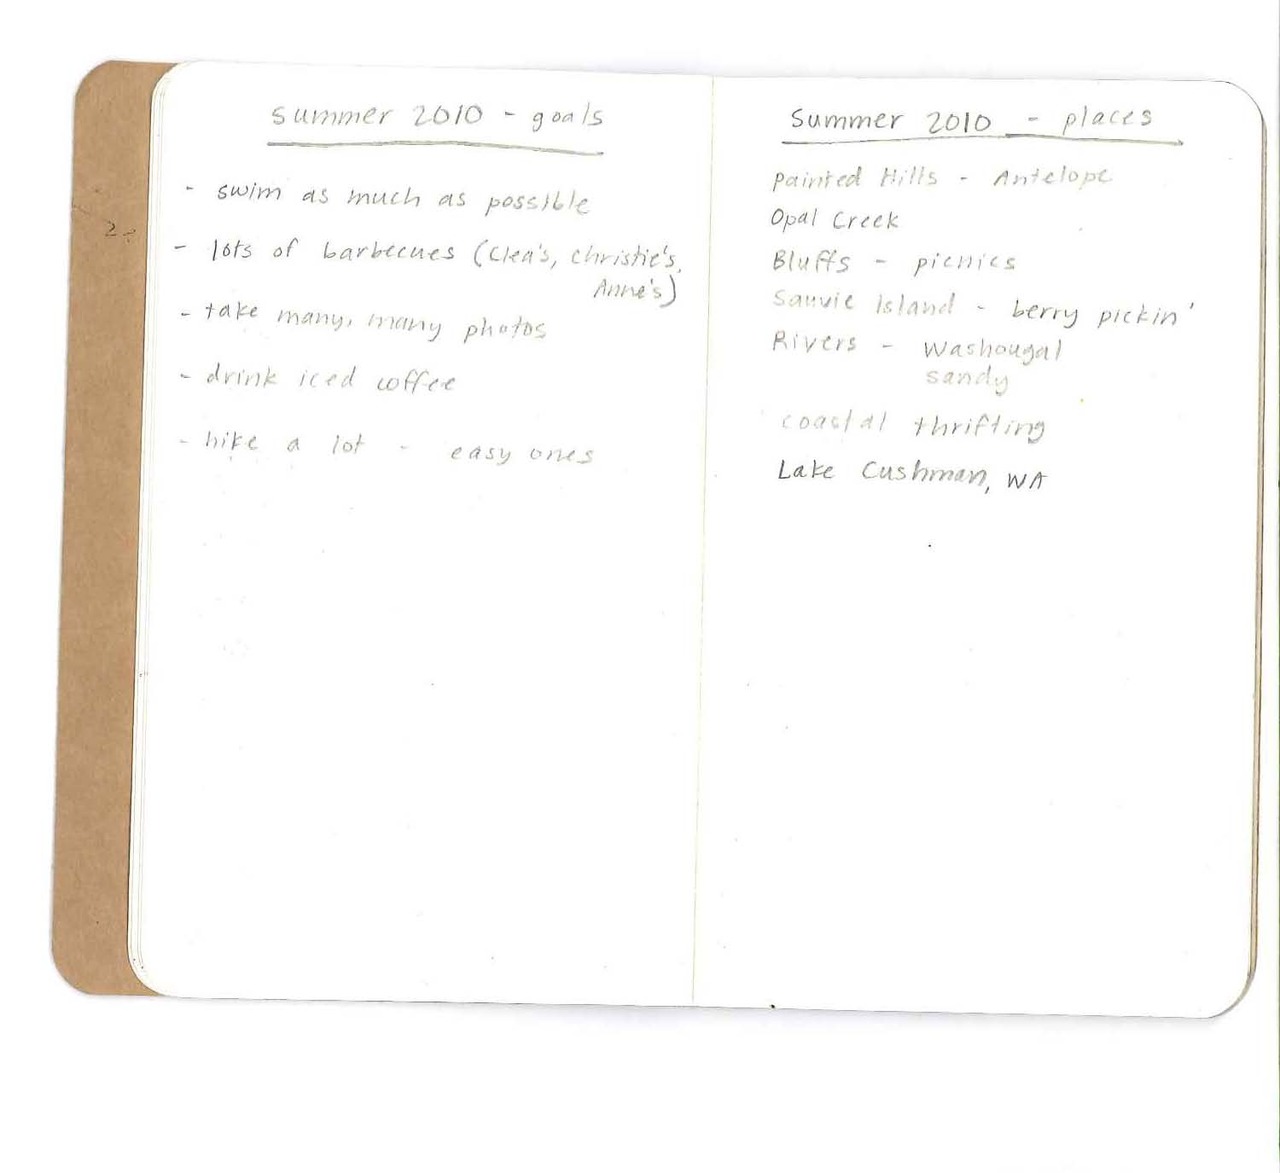 summer 2010 - goals
- swim as much as possible
- lots of barbecues (Clea's, Christie's,
Anne's)
- take many, many photos
- drink iced coffee
- hike a lot - easy ones
Summer 2010 - places
Painted Hills - Antelope
Opal Creek
Bluffs - picnics
Sauvie Island - berry pickin'
Rivers - Washougal
sandy
coastal thrifting
Lake Cushman, WA